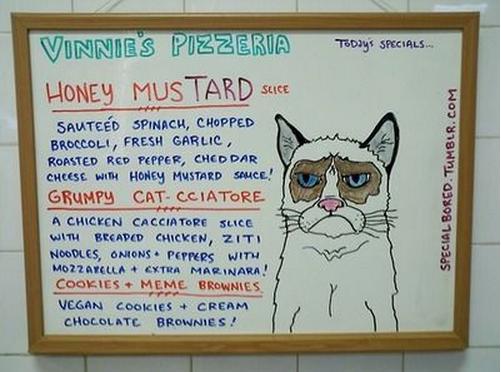 VINNIE'S PIZZERIA
TODAY'S SPECIALS...
HONEY MUSTARD SLICE
SAUTEÉD SPINACH, CHOPPED
BROCCOLI, FRESH GARLIC,
ROASTED RED PEPPER, CHEDDAR
CHEESE WITH HONEY MUSTARD SAUCE!
GRUMPY CAT-CCIATORE
A CHICKEN CACCIATORE SLICE
WITH BREADED CHICKEN, ZITI
NOODLES, ONIONS + PEPPERS WITH
MOZZARELLA + EXTRA MARINARA!
COOKIES + MEME BROWNIES
VEGAN COOKIES + CREAM
CHOCOLATE BROWNIES!
SPECIALBORED.TUMBLR.COM